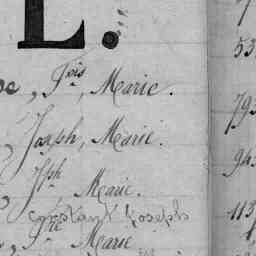 L.
, Fois, Marie.
Joseph, Marie.
Jph Marie.
constant Joseph
, Fre Marie
53
793
943
113